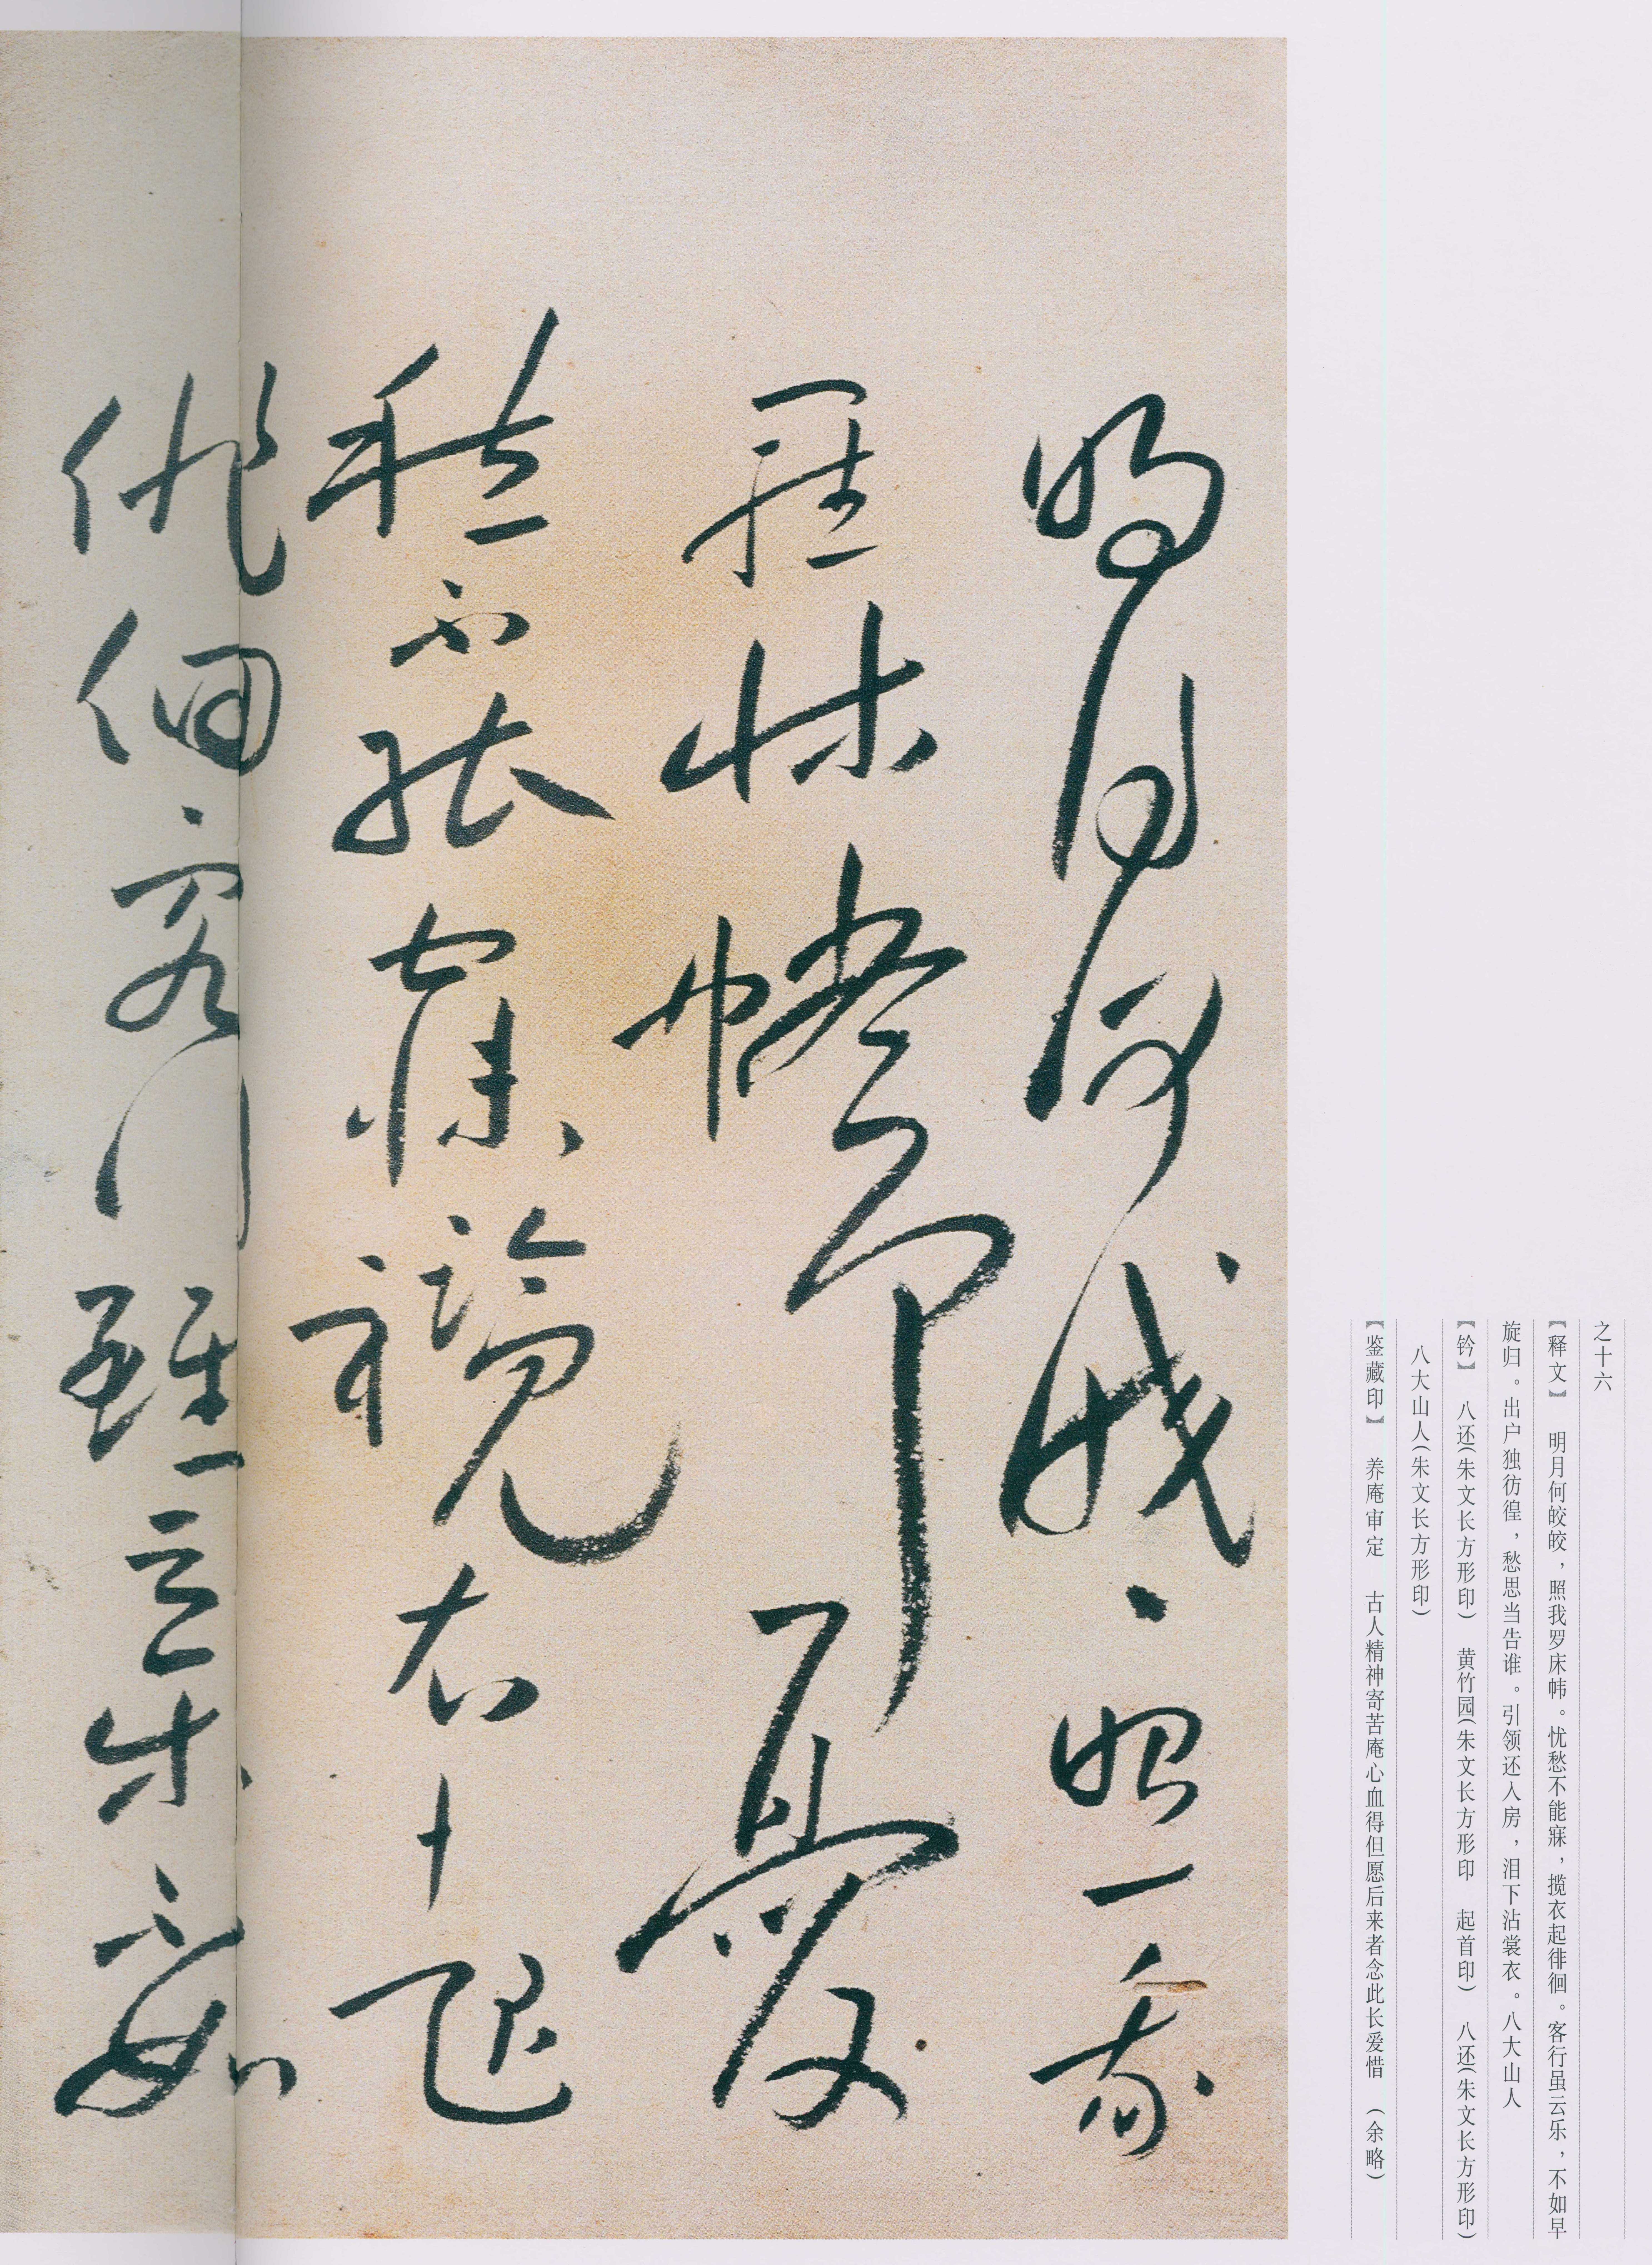 之十六
【释文】 明月何皎皎，照我罗床帏。忧愁不能寐，揽衣起徘徊。客行虽云乐，不如早
旋归。出户独彷徨，愁思当告谁。引领还入房，泪下沾裳衣。八大山人
【钤】 八还(朱文长方形印) 黄竹园(朱文长方形印 起首印) 八还(朱文长方形印)
八大山人(朱文长方形印)
【鉴藏印】 养庵审定 古人精神寄苦庵心血得但愿后来者念此长爱惜 (余略)
明月何皎〻照我
羅床幃憂
愁不能寐攬衣起
俳佪客行雖云樂不如